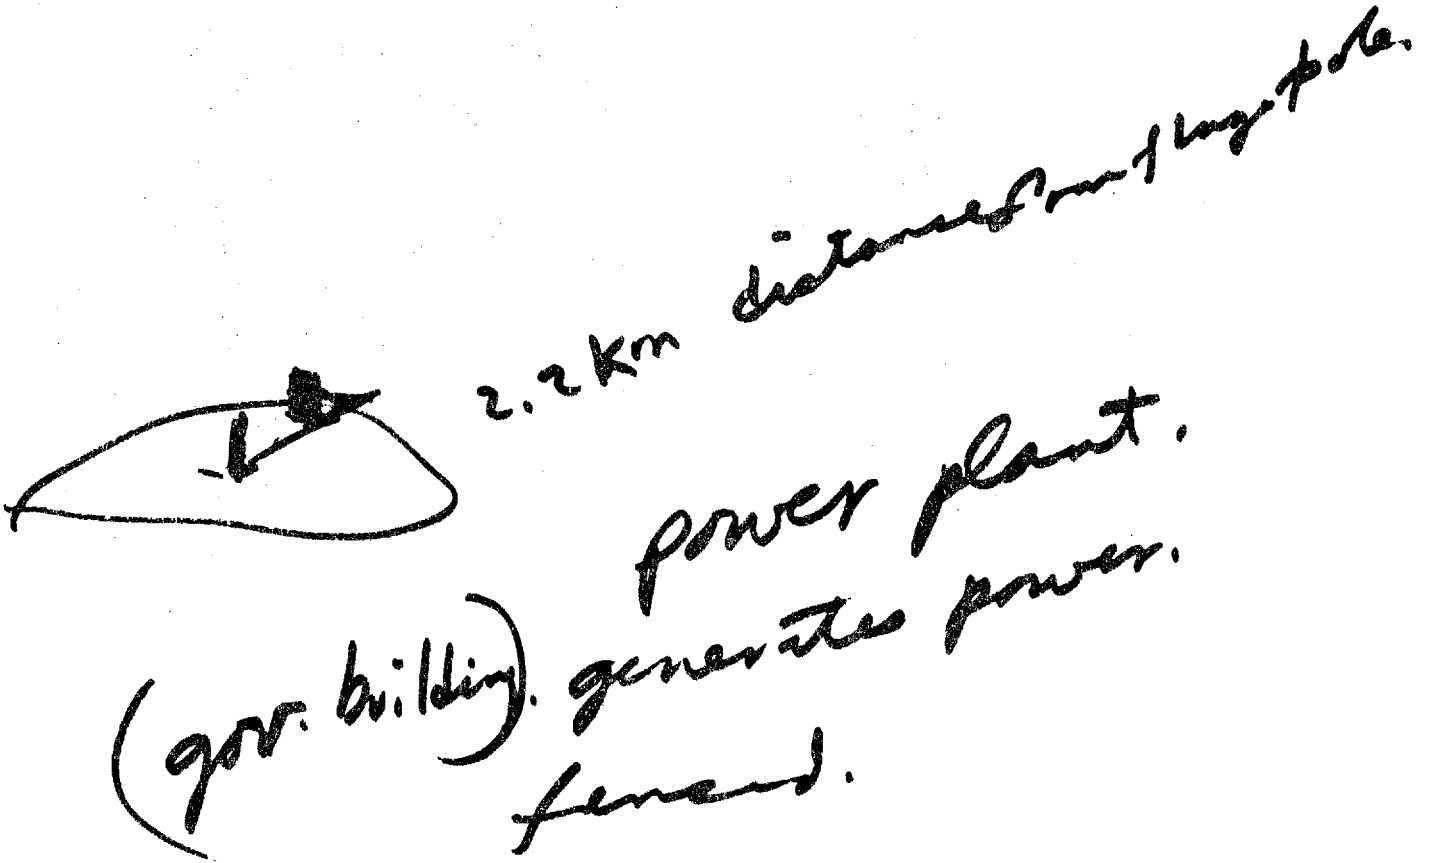 2.2 km distance from flag pole.
power plant.
(gov. building). generates power.
fenced.